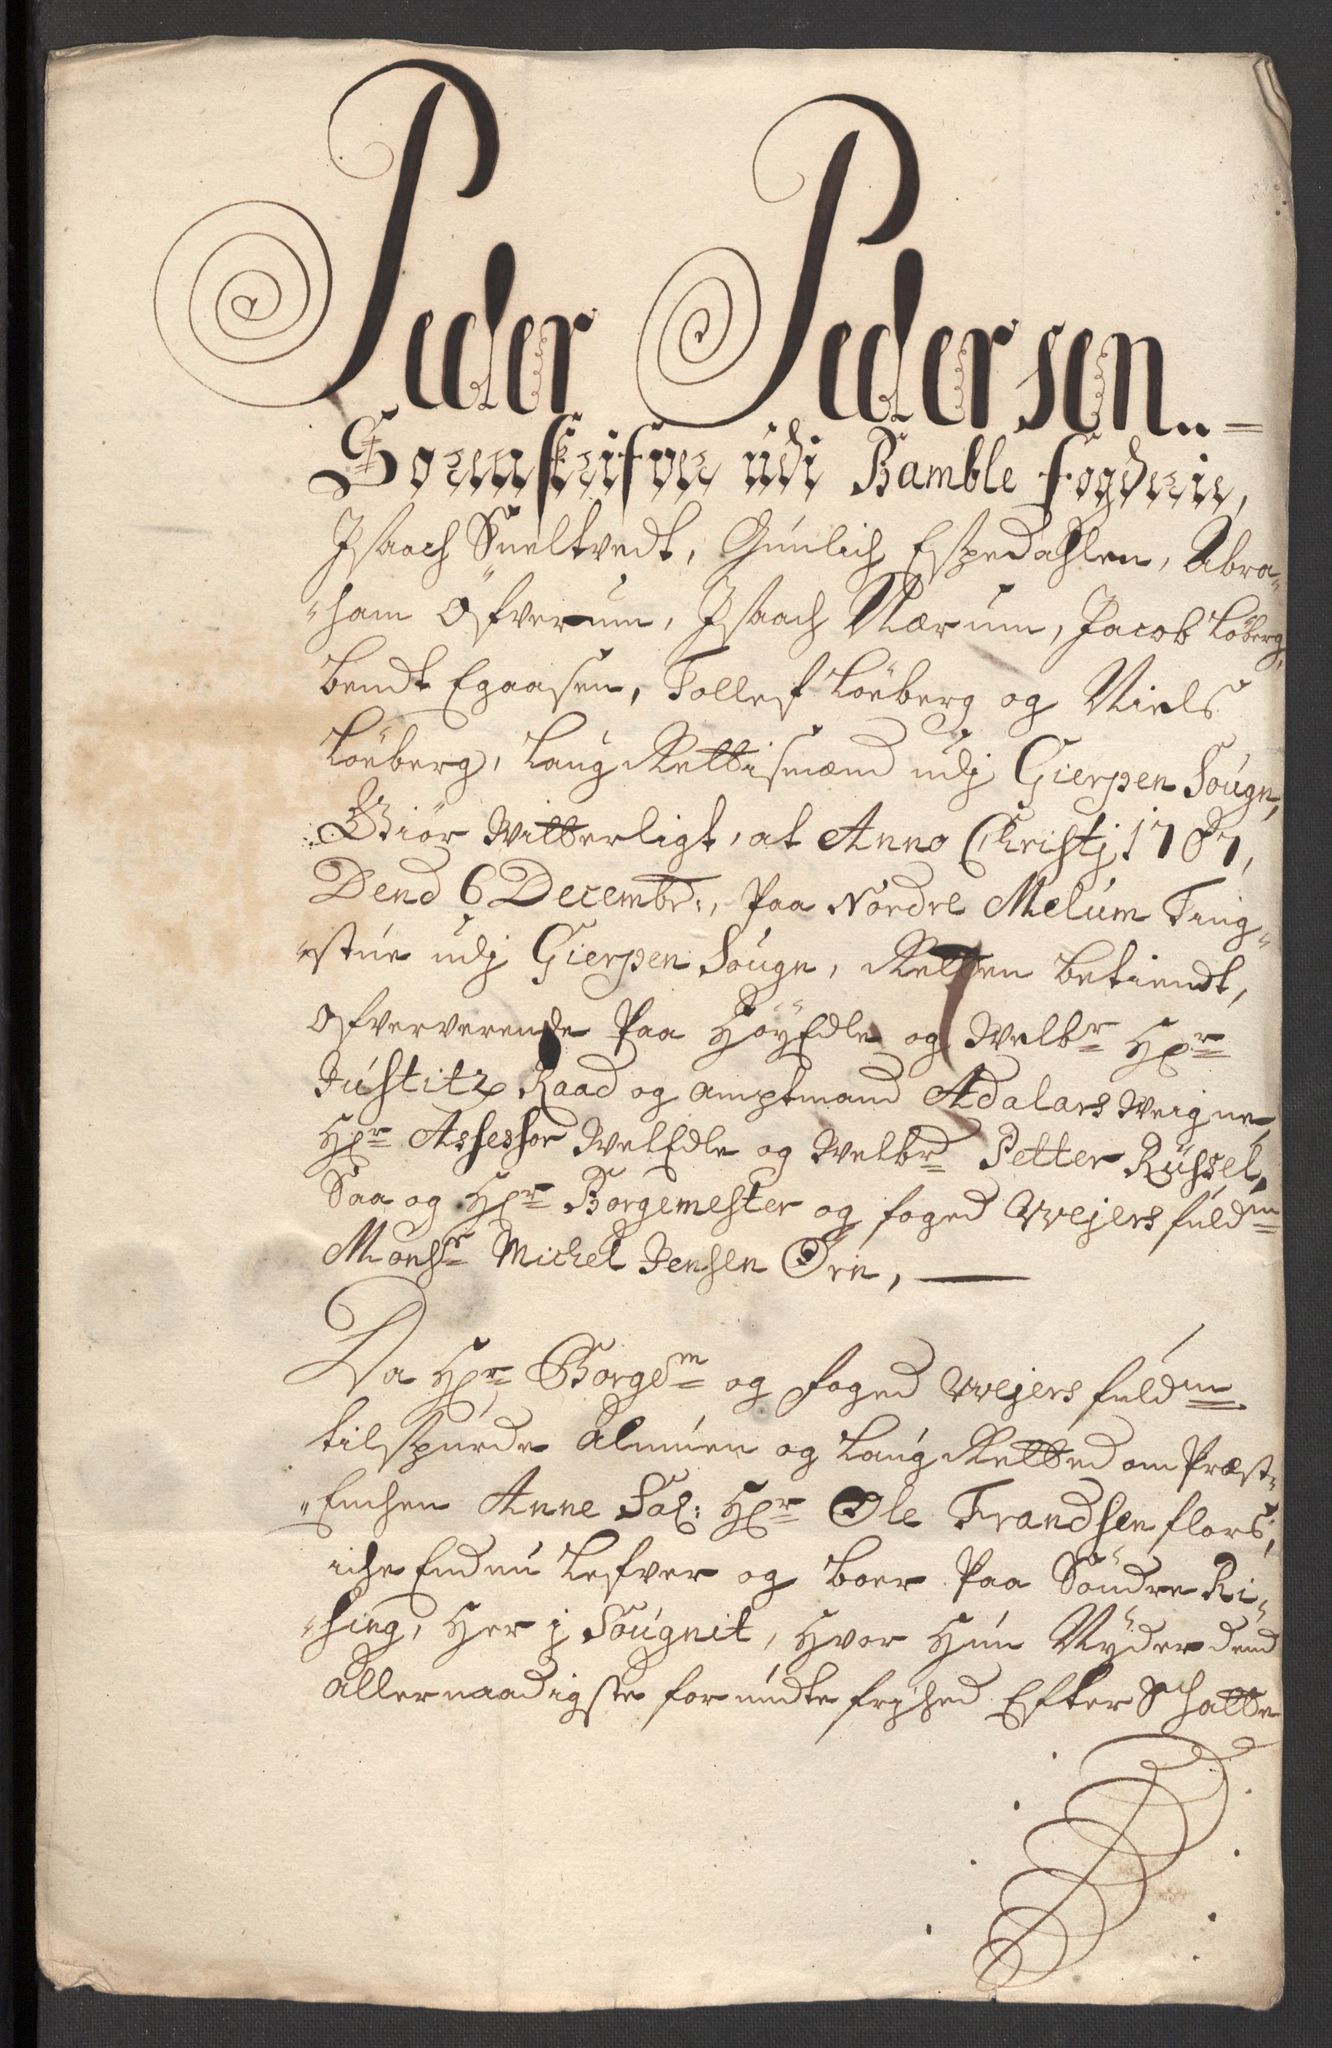 Peder Pedersen..=
Sorenskrifver udi Bamble fogderie,
Isaach Sneltvedt, Gunlich Espedahlen, Abra-
-ham Öfverum, Isaach Nærum, Jacob Löberg,
bendt Egaasen, Tollef Löeberg og Niels
Löeberg, Laug Rettismænd udj Gierpen Sougn,
Giör Witterligt, at Anno Christj 1707,
Dend 6 Decembr:, Paa Nordre Melum Ting-
-stue udj Gierpen Sougn, Retten betiendt,
ofververende Paa HöyEdle og Welbr Hr
Justitz Raad og Amptmand Adalars
Hr Assessor WelEdle og Welbr Petter Rüssel,
Saa og Hr Borgemester og foged Weyers fuldm
Monsr Michel Jensen Örn,
Da Hr Borgem og foged Weyers fuldm
tilspurde Almuen og Laug Retted om Præst-
-Enchen Anne Sal: Hr Ole Frandsen flors,
iche Endnu Lefver og boer Paa Söndre Ri-
-sing, Her j Sougnit, Hvor Hun Nyder dend
Allernaadigste forundte fryhed Efter Schatte